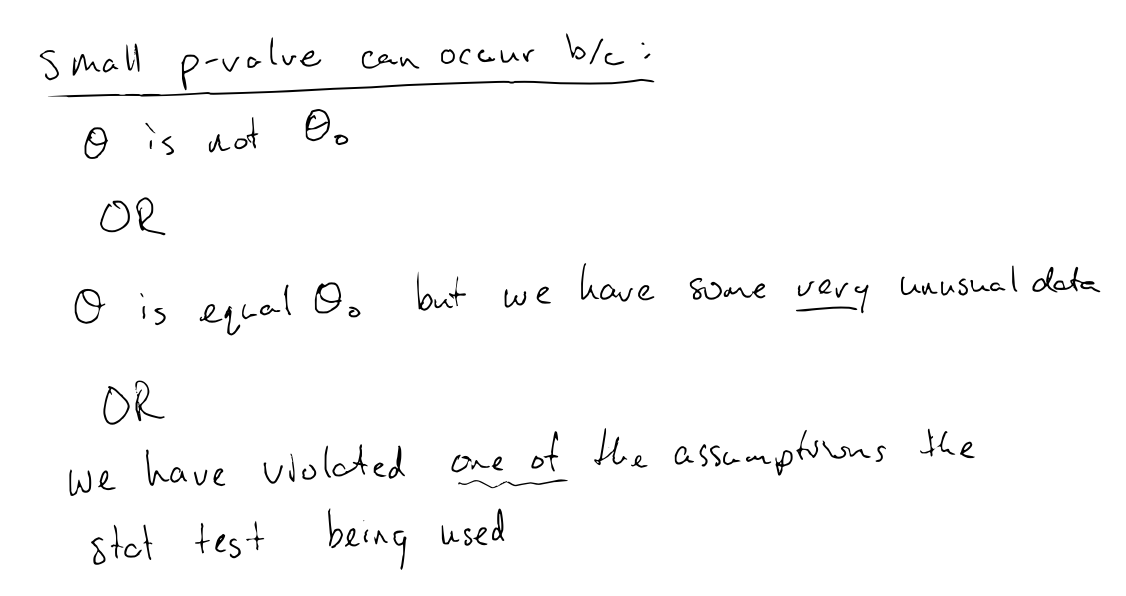 Small p-value can occur b/c:
θ is not θ₀
OR
θ is equal θ₀ but we have some very unusual data
OR
we have violated one of the assumptions the
stat test being used